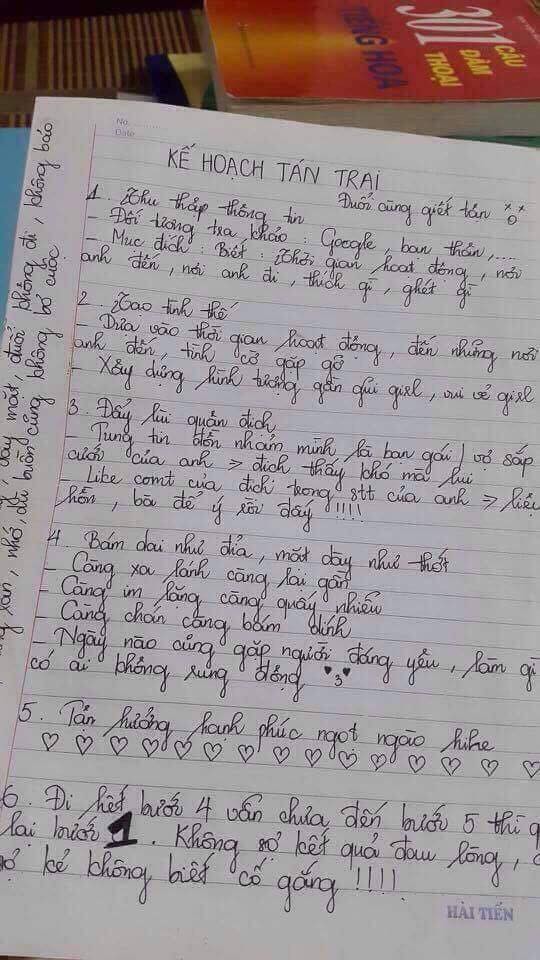 301
CÂU
ĐÀM
THOẠI
TIẾNG HOA
No.
Date
KẾ HOẠCH TÁN TRAI
Đuổi cùng giết tận
1. Thu thập thông tin
- Đối tượng tra khảo : Google, bạn thân,....
- Mục đích : Biết : Thời gian hoạt động, nơi
anh đến, nơi anh đi, thích gì, ghét gì
2. Tạo tình thế
- Dựa vào thời gian hoạt động, đến những nơi
anh đến, tình cờ gặp gỡ
- Xây dựng hình tượng gần gũi girl, vui vẻ girl
3. Đẩy lùi quân địch
- Tung tin đồn nhảm mình là bạn gái / vợ sắp
cưới của anh => địch thấy khó mà lui
- Like comt của địch trong stt của anh => liều
hồn, bà để ý rồi đấy !!!!
4. Bám dai như đỉa, mặt dày như thớt
- Càng xa lánh càng lại gần
- Càng im lặng càng quấy nhiễu
- Càng chán càng bám dính
- Ngày nào cũng gặp người đáng yêu, làm gì
có ai không rung động
5. Tận hưởng hạnh phúc ngọt ngào hihe
6. Đi hết bước 4 vẫn chưa đến bước 5 thì
lại bước 1. Không sợ kết quả đau lòng,
sợ kẻ không biết cố gắng !!!!
mặt, đuổi không đi, không báo
nhớ, dù buồn cũng không bỏ cuộc
HẢI TIẾN